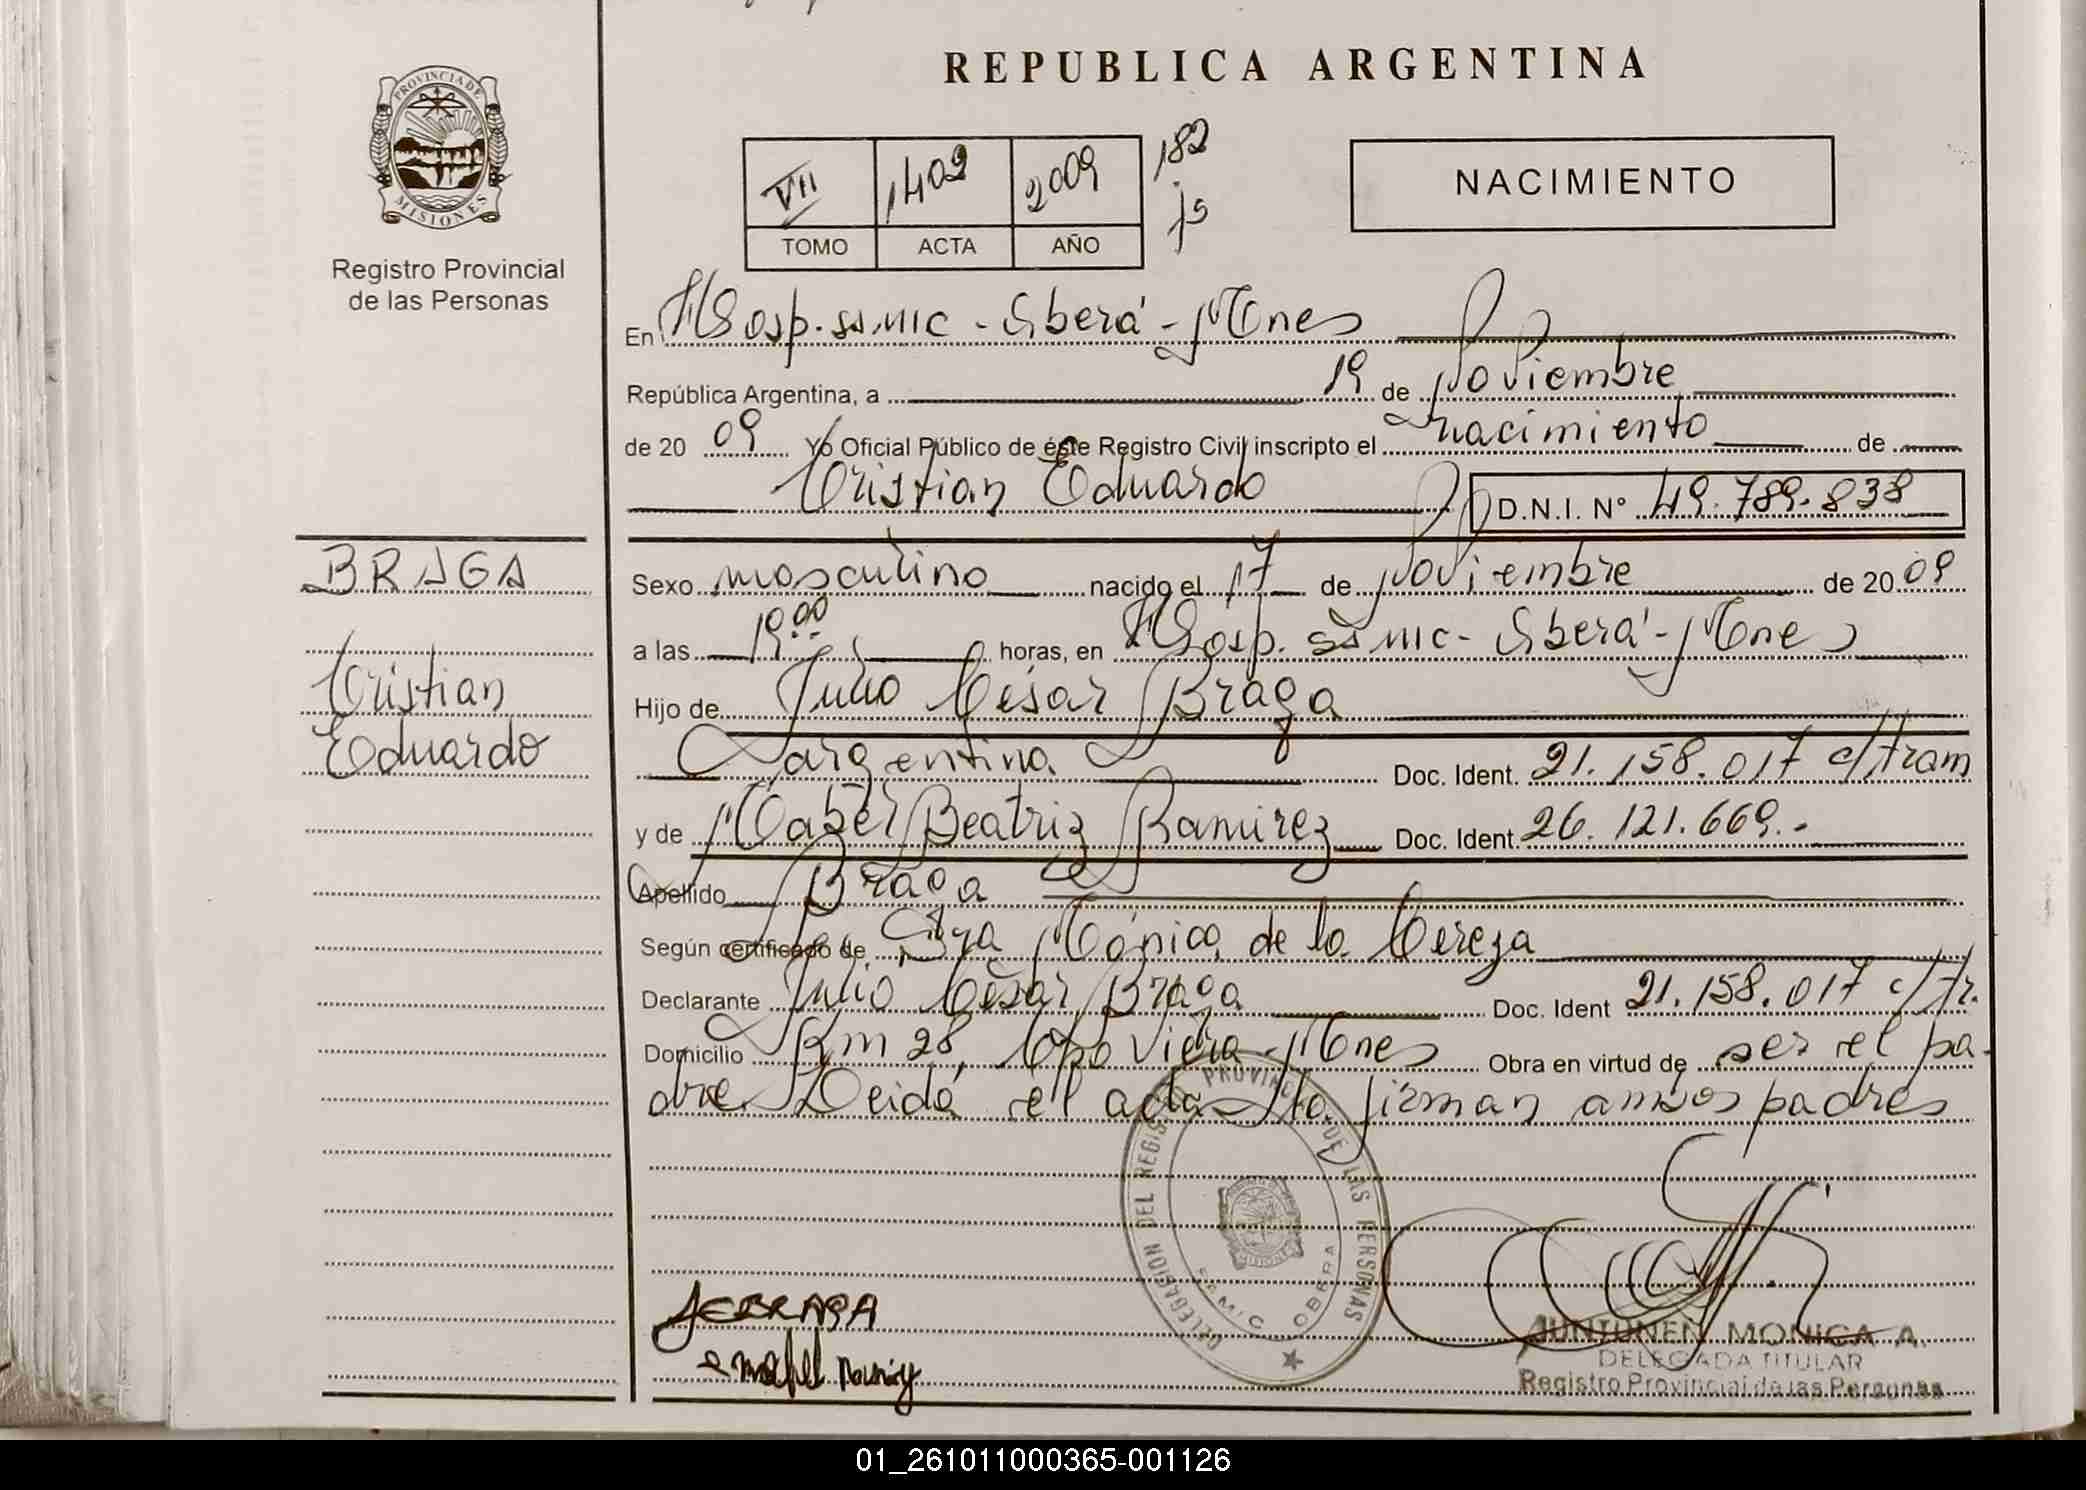 REPUBLICA ARGENTINA
PROVINCIA DE
MISIONES
Registro Provincial
de las Personas
VII 1402 2009 182
TOMO ACTA AÑO js
NACIMIENTO
En Hosp. SAMIC - Oberá - Mnes
República Argentina, a 19 de Noviembre
de 20 09 Yo Oficial Público de éste Registro Civil inscripto el nacimiento de
Cristian Eduardo D.N.I. Nº 49.789.838
BRAGA
Cristian
Eduardo
Sexo masculino nacido el 17 de Noviembre de 20 09
a las 19:00 horas, en Hosp. SAMIC - Oberá - Mnes
Hijo de Julio César Braga
argentina Doc. Ident. 21.158.017 c/tram
y de Mabel Beatriz Ramirez Doc. Ident. 26.121.669.-
Apellido Braga
Según certificado de Dra Mónica de la Cereza
Declarante Julio César Braga Doc. Ident 21.158.017 c/tr.
Domicilio Km 28, Cpo Viera - Mnes Obra en virtud de ser el pa-
dre. Leida el acta la firman ambos padres
DELEGACION DEL REGISTRO PROVINCIAL DE LAS PERSONAS
SAMIC OBERA
JCBRAGA
JUNTUNEN MONICA A.
DELEGADA TITULAR
Registro Provincial de las Personas
01_261011000365-001126